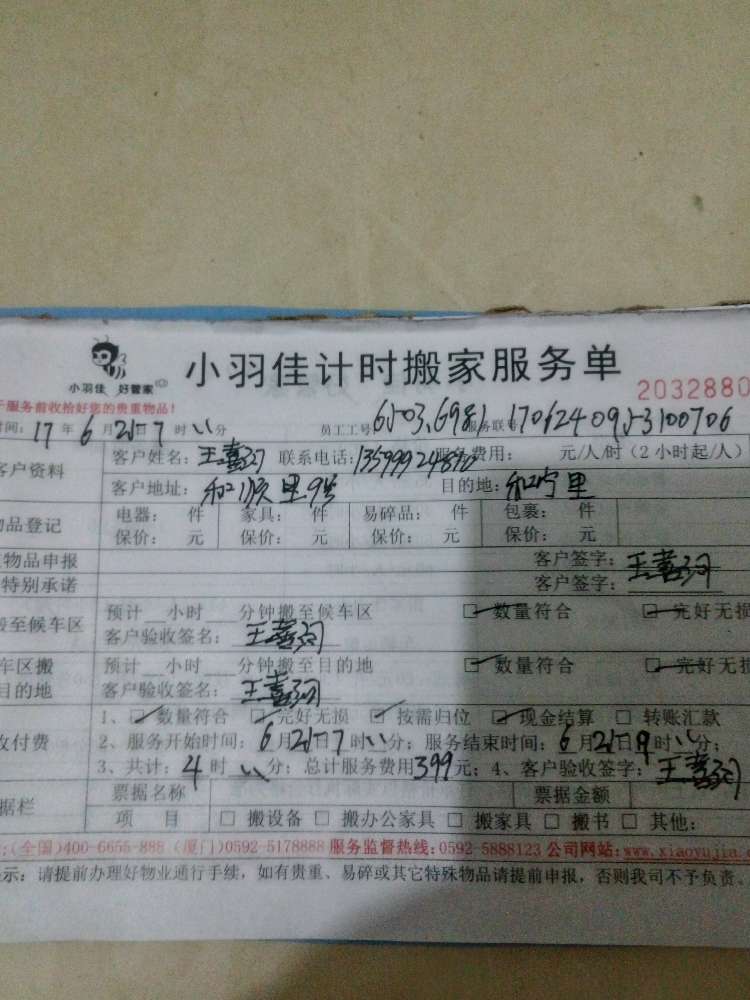 小羽佳 好管家
小羽佳计时搬家服务单
2032880
服务前收拾好您的贵重物品！
时间：17年6月 7时 分 员工工号 服务联号 1706240953100706
客户资料 客户姓名：王 联系电话： 服务费用： 元/人/时（2小时起/人）
客户地址：和顺里9号 目的地：和宁里
物品登记 电器： 件 家具： 件 易碎品： 件 包裹： 件
保价： 元 保价： 元 保价： 元 保价： 元
物品申报 客户签字：王
特别承诺 客户签字：王
搬至候车区 预计__小时__分钟搬至候车区 数量符合 完好无损
客户验收签名：王
车区搬 预计__小时__分钟搬至目的地 数量符合 完好无损
目的地 客户验收签名：王
收付费 1、 数量符合 完好无损 按需归位 现金结算 转账汇款
2、服务开始时间：6月 日7时 分；服务结束时间：6月 日 时 分；
3、共计：4时 分；总计服务费用399元；4、客户验收签字：王
据栏 票据名称 票据金额
项 目 搬设备 搬办公家具 搬家具 搬书 其他：
：(全国)400-6655-888 (厦门)0592-5178888 服务监督热线：0592-5888123 公司网站：www.xiaoyujia.
示：请提前办理好物业通行手续，如有贵重、易碎或其它特殊物品请提前申报，否则我司不予负责。